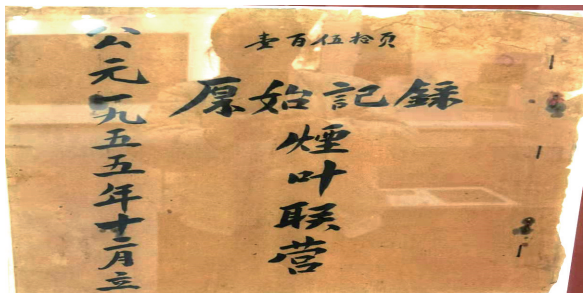 壹百伍拾页
原始記録
煙叶联营
公元一九五五年十二月立